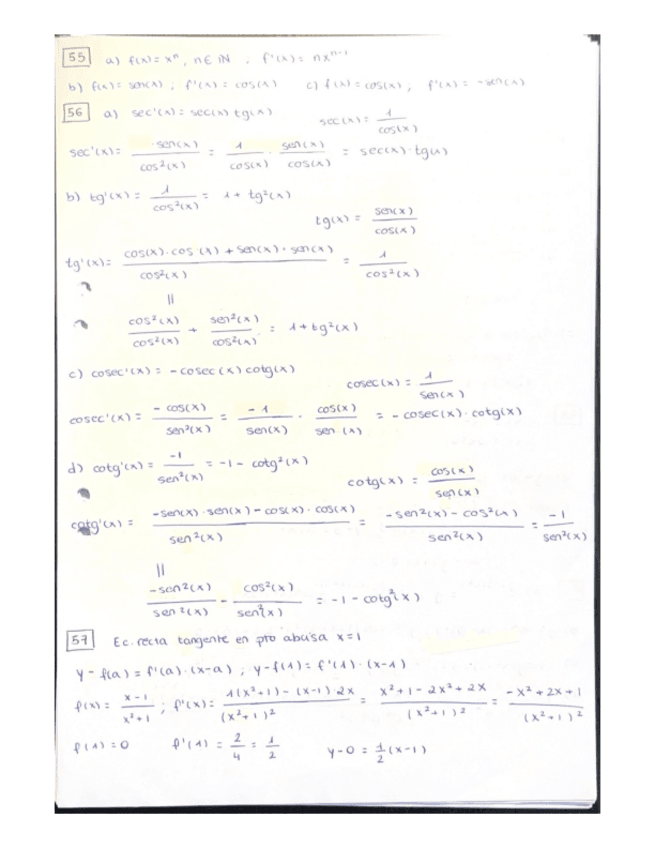 55 a) f(x) = xⁿ, n ∈ ℕ, f'(x) = nxⁿ⁻¹
b) f(x) = sen(x); f'(x) = cos(x) c) f(x) = cos(x); f'(x) = -sen(x)
56 a) sec'(x) = sec(x) tg(x) sec(x) = 1/cos(x)
sec'(x) = sen(x)/cos²(x) = 1/cos(x) · sen(x)/cos(x) = sec(x) · tg(x)
b) tg'(x) = 1/cos²(x) = 1 + tg²(x)
tg(x) = sen(x)/cos(x)
tg'(x) = (cos(x) · cos(x) + sen(x) · sen(x))/cos²(x) = 1/cos²(x)
||
cos²(x)/cos²(x) + sen²(x)/cos²(x) = 1 + tg²(x)
c) cosec'(x) = -cosec(x) cotg(x) cosec(x) = 1/sen(x)
cosec'(x) = -cos(x)/sen²(x) = -1/sen(x) · cos(x)/sen(x) = -cosec(x) · cotg(x)
d) cotg'(x) = -1/sen²(x) = -1 - cotg²(x)
cotg(x) = cos(x)/sen(x)
cotg'(x) = (-sen(x) · sen(x) - cos(x) · cos(x))/sen²(x) = (-sen²(x) - cos²(x))/sen²(x) = -1/sen²(x)
||
-sen²(x)/sen²(x) - cos²(x)/sen²(x) = -1 - cotg²(x)
57 Ec. recta tangente en pto abcisa x = 1
y - f(a) = f'(a) · (x-a); y - f(1) = f'(1) · (x-1)
f(x) = (x-1)/(x²+1); f'(x) = (1(x²+1) - (x-1) · 2x)/(x²+1)² = (x²+1-2x²+2x)/(x²+1)² = (-x²+2x+1)/(x²+1)²
f(1) = 0 f'(1) = 2/4 = 1/2 y-0 = 1/2 (x-1)